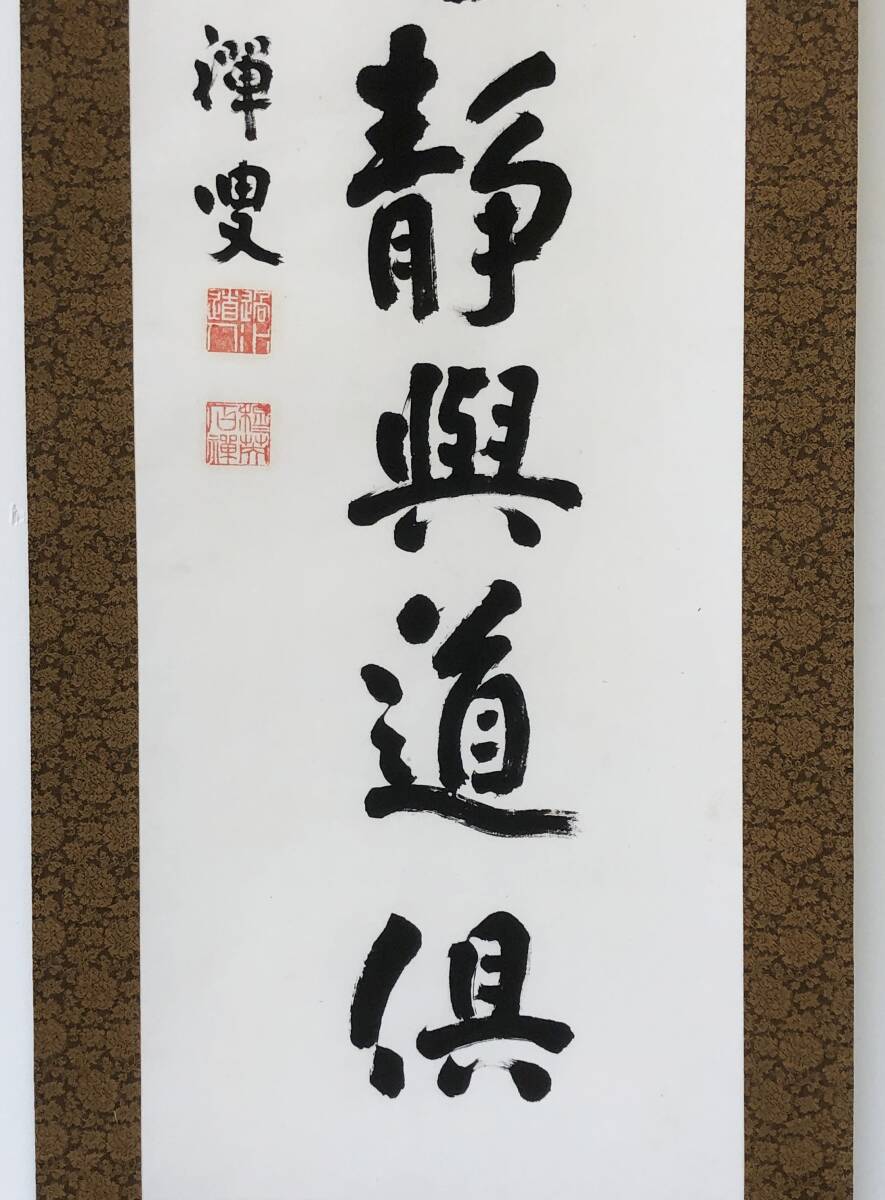 靜與道俱
禪叟